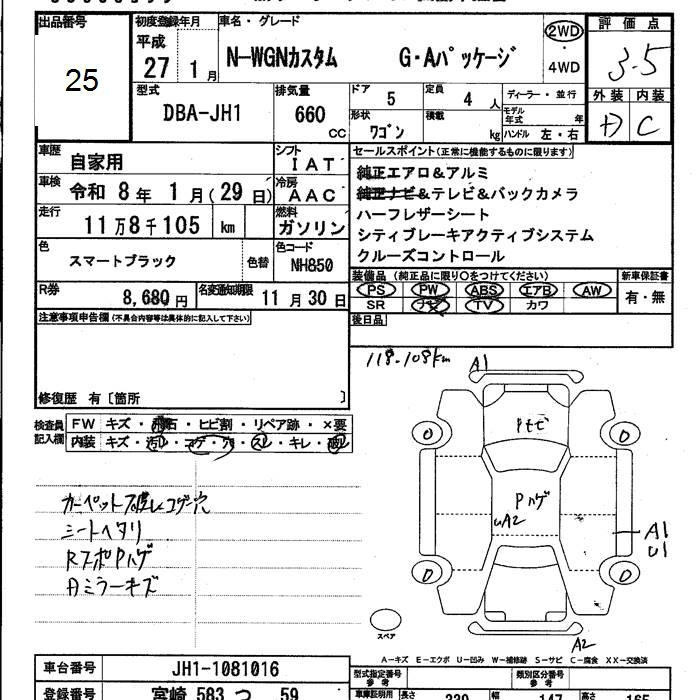 出品番号
25
初度登録年月
平成
27 1 月
車名・グレード
N-WGNカスタム G・Aパッケージ
2WD
・
4WD
評価点
3.5
外装 内装
D C
型式
DBA-JH1
排気量
660
CC
ドア
5
定員
4 人
形状
ワゴン
積載
kg
ディーラー・並行
モデル年式 年
ハンドル 左・右
車歴
自家用
シフト
IAT
車検
令和 8 年 1 月(29 日)
冷房
AAC
走行
11 万 8 千 105 km
燃料
ガソリン
色
スマートブラック
色替
色コード
NH850
R券
8,680 円
名変通知期限
11 月 30 日
セールスポイント(正常に機能するものに限ります)
純正エアロ&アルミ
純正ナビ&テレビ&バックカメラ
ハーフレザーシート
シティブレーキアクティブシステム
クルーズコントロール
装備品(純正品に限り○をつけてください)
新車保証書
PS PW ABS エアB AW
有・無
SR ナビ TV カワ
後日品
注意事項申告欄(不具合内容等は具体的に記入して下さい)
修復歴 有〔箇所 〕
検査員記入欄
FW キズ・飛石・ヒビ割・リペア跡・×要
内装 キズ・汚レ・コゲ・穴・スレ・キレ・破レ
カーペット破レコゲ穴
シートヘタリ
RスポPハゲ
Aミラーキズ
118.108km
A1
Pトビ
Pハゲ
UA2
A1
U1
A2
スペア
A-キズ E-エクボ U-凹み W-補修跡 S-サビ C-腐食 XX-交換済
車台番号
JH1-1081016
登録番号
宮崎 583 つ 59
型式指定番号
参考
類別区分番号
参考
車庫証明用
長さ 339 幅 147 高さ 165